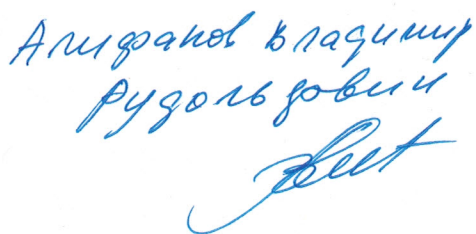 Алифанов Владимир
Рудольфович